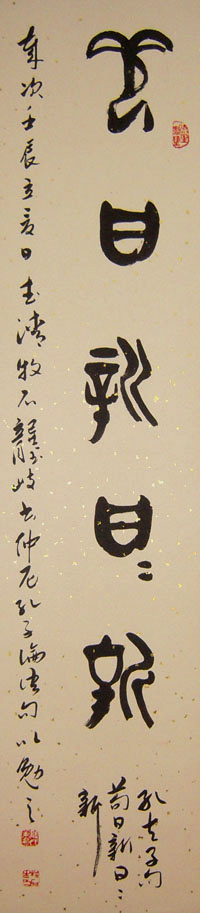 苟日新日〻新
孔夫子句
苟日新日〻
新
歲次壬辰立夏日 牧石 書仲尼孔子論語句以勉之